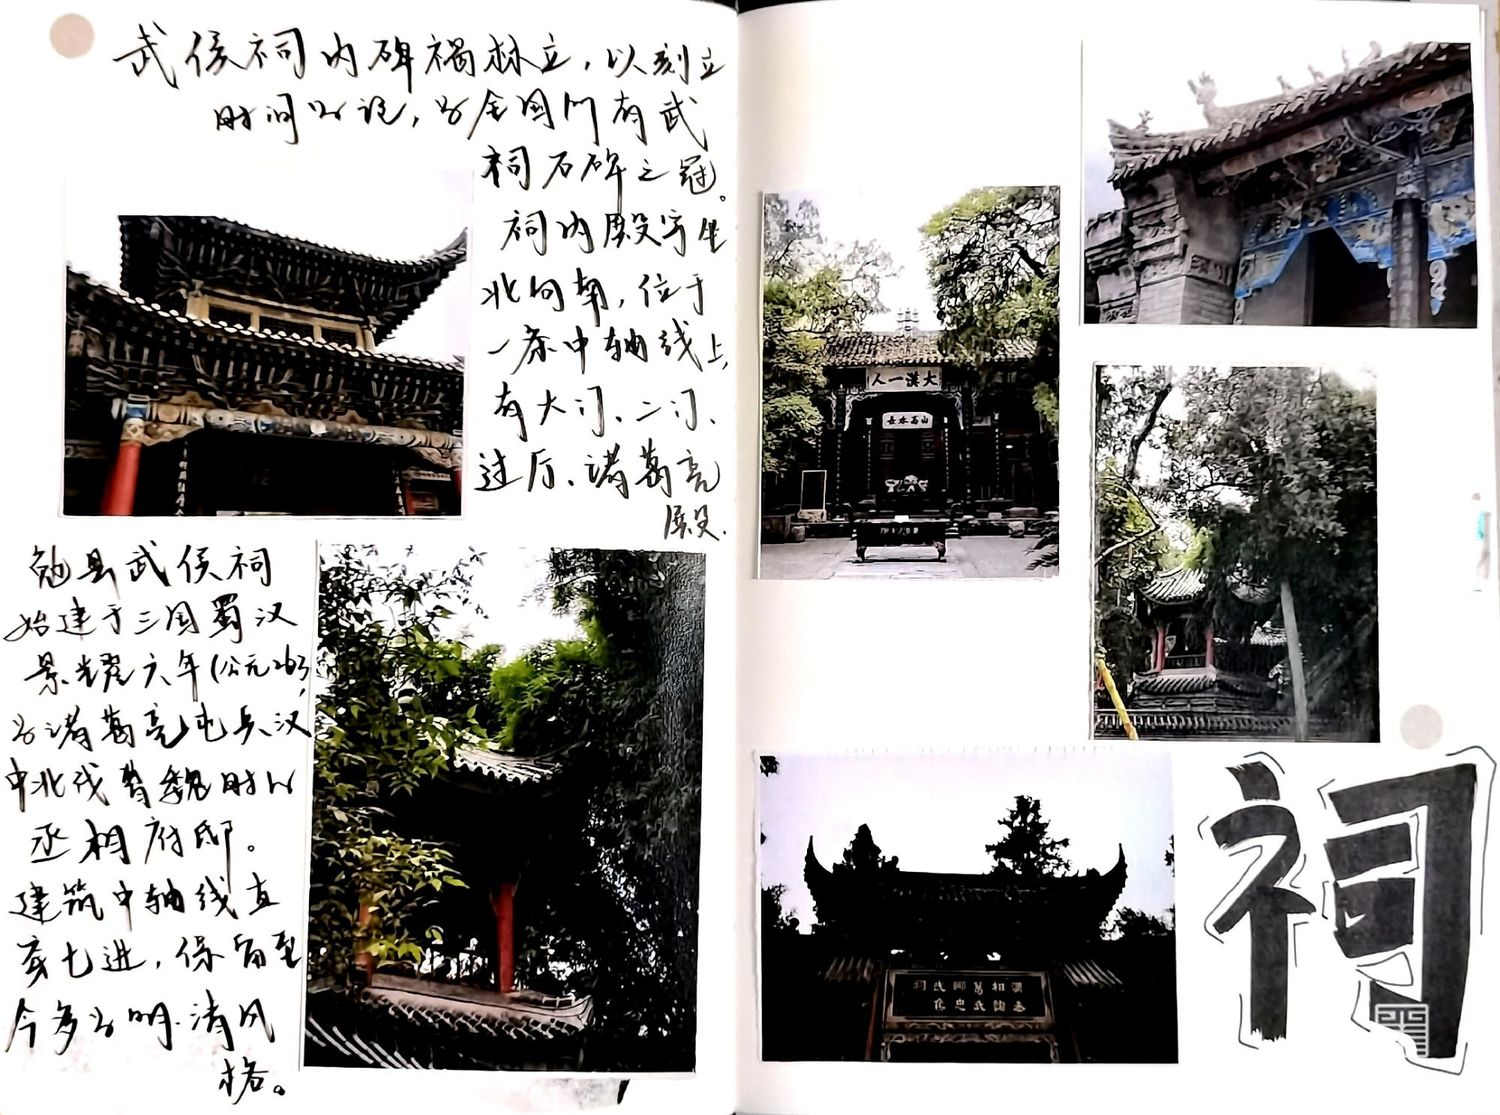 武侯祠内碑褐林立，以刻立
时间为论，为全国所有武
祠石碑之冠。
祠内殿宇坐
北向南，位于
一条中轴线上，
有大门、二门、
过厅、诸葛亮
殿.
勉县武侯祠
始建于三国蜀汉
景耀六年(公元263,
为诸葛亮屯兵汉
中北伐曹魏时以
丞相府邸。
建筑中轴线直
亥七进，保留至
今多为明.清风
格。
人一漢大
長水高山
祠